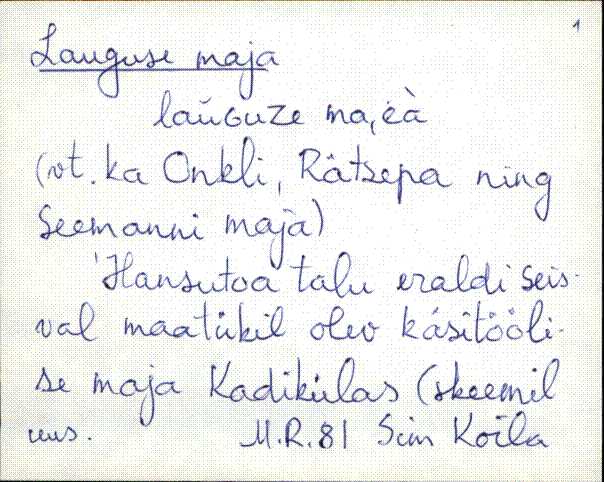 1
Lauguse maja
(vt. ka Onkli, Rätsepa ning
Seemanni maja)
'Hansutoa talu eraldi seis-
val maatükil olev käsitööli-
se maja Kadikülas (skeemil
uus. M.R. 81 Sim Koila